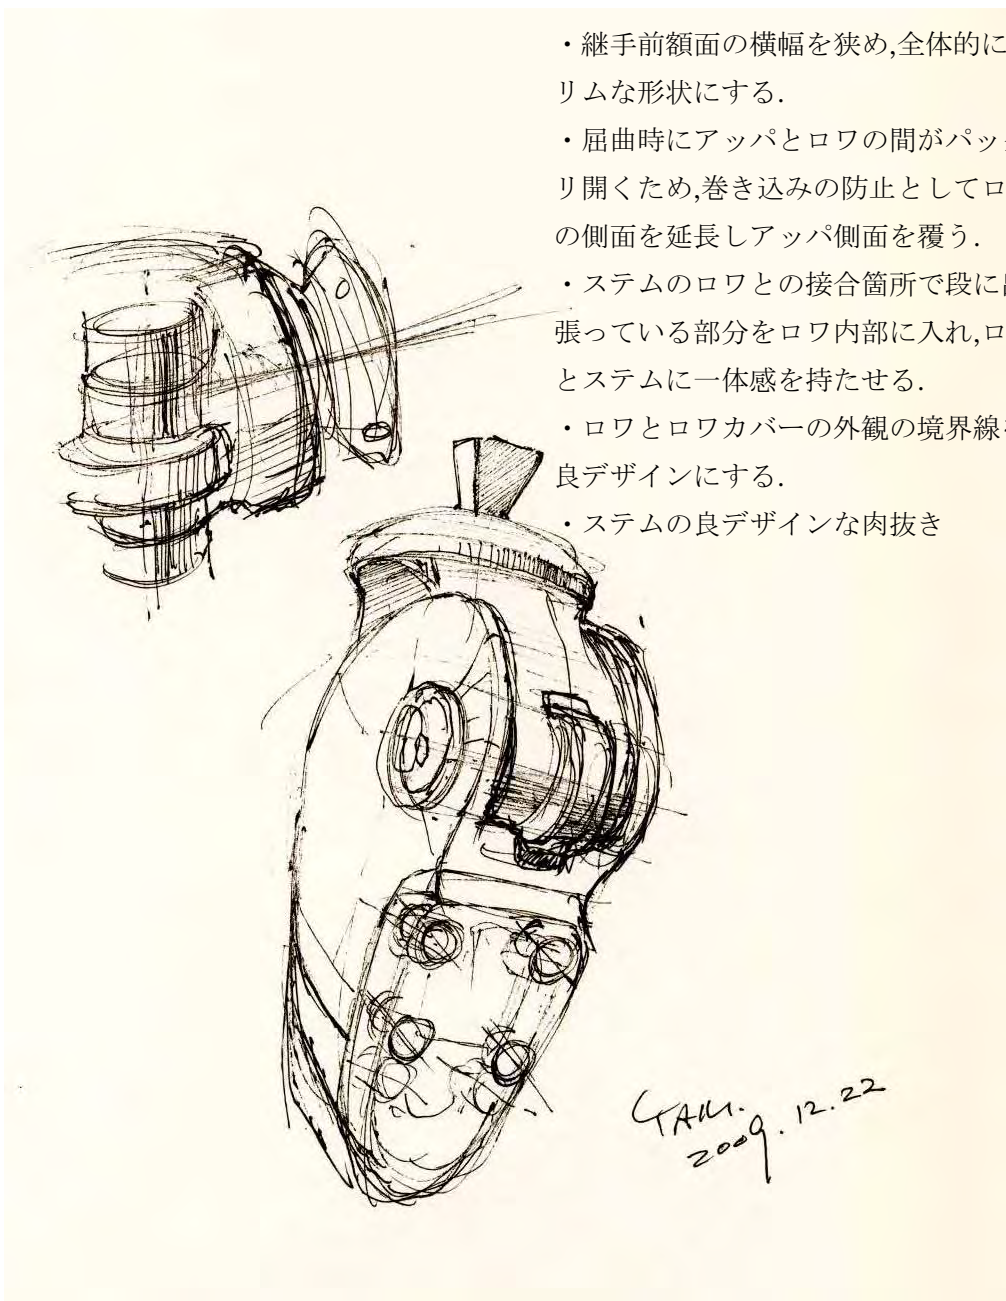 ・継手前額面の横幅を狭め,全体的に
リムな形状にする.
・屈曲時にアッパとロワの間がパッ
リ開くため,巻き込みの防止としてロ
の側面を延長しアッパ側面を覆う.
・ステムのロワとの接合箇所で段に
張っている部分をロワ内部に入れ,ロ
とステムに一体感を持たせる.
・ロワとロワカバーの外観の境界線
良デザインにする.
・ステムの良デザインな肉抜き
2009.12.22